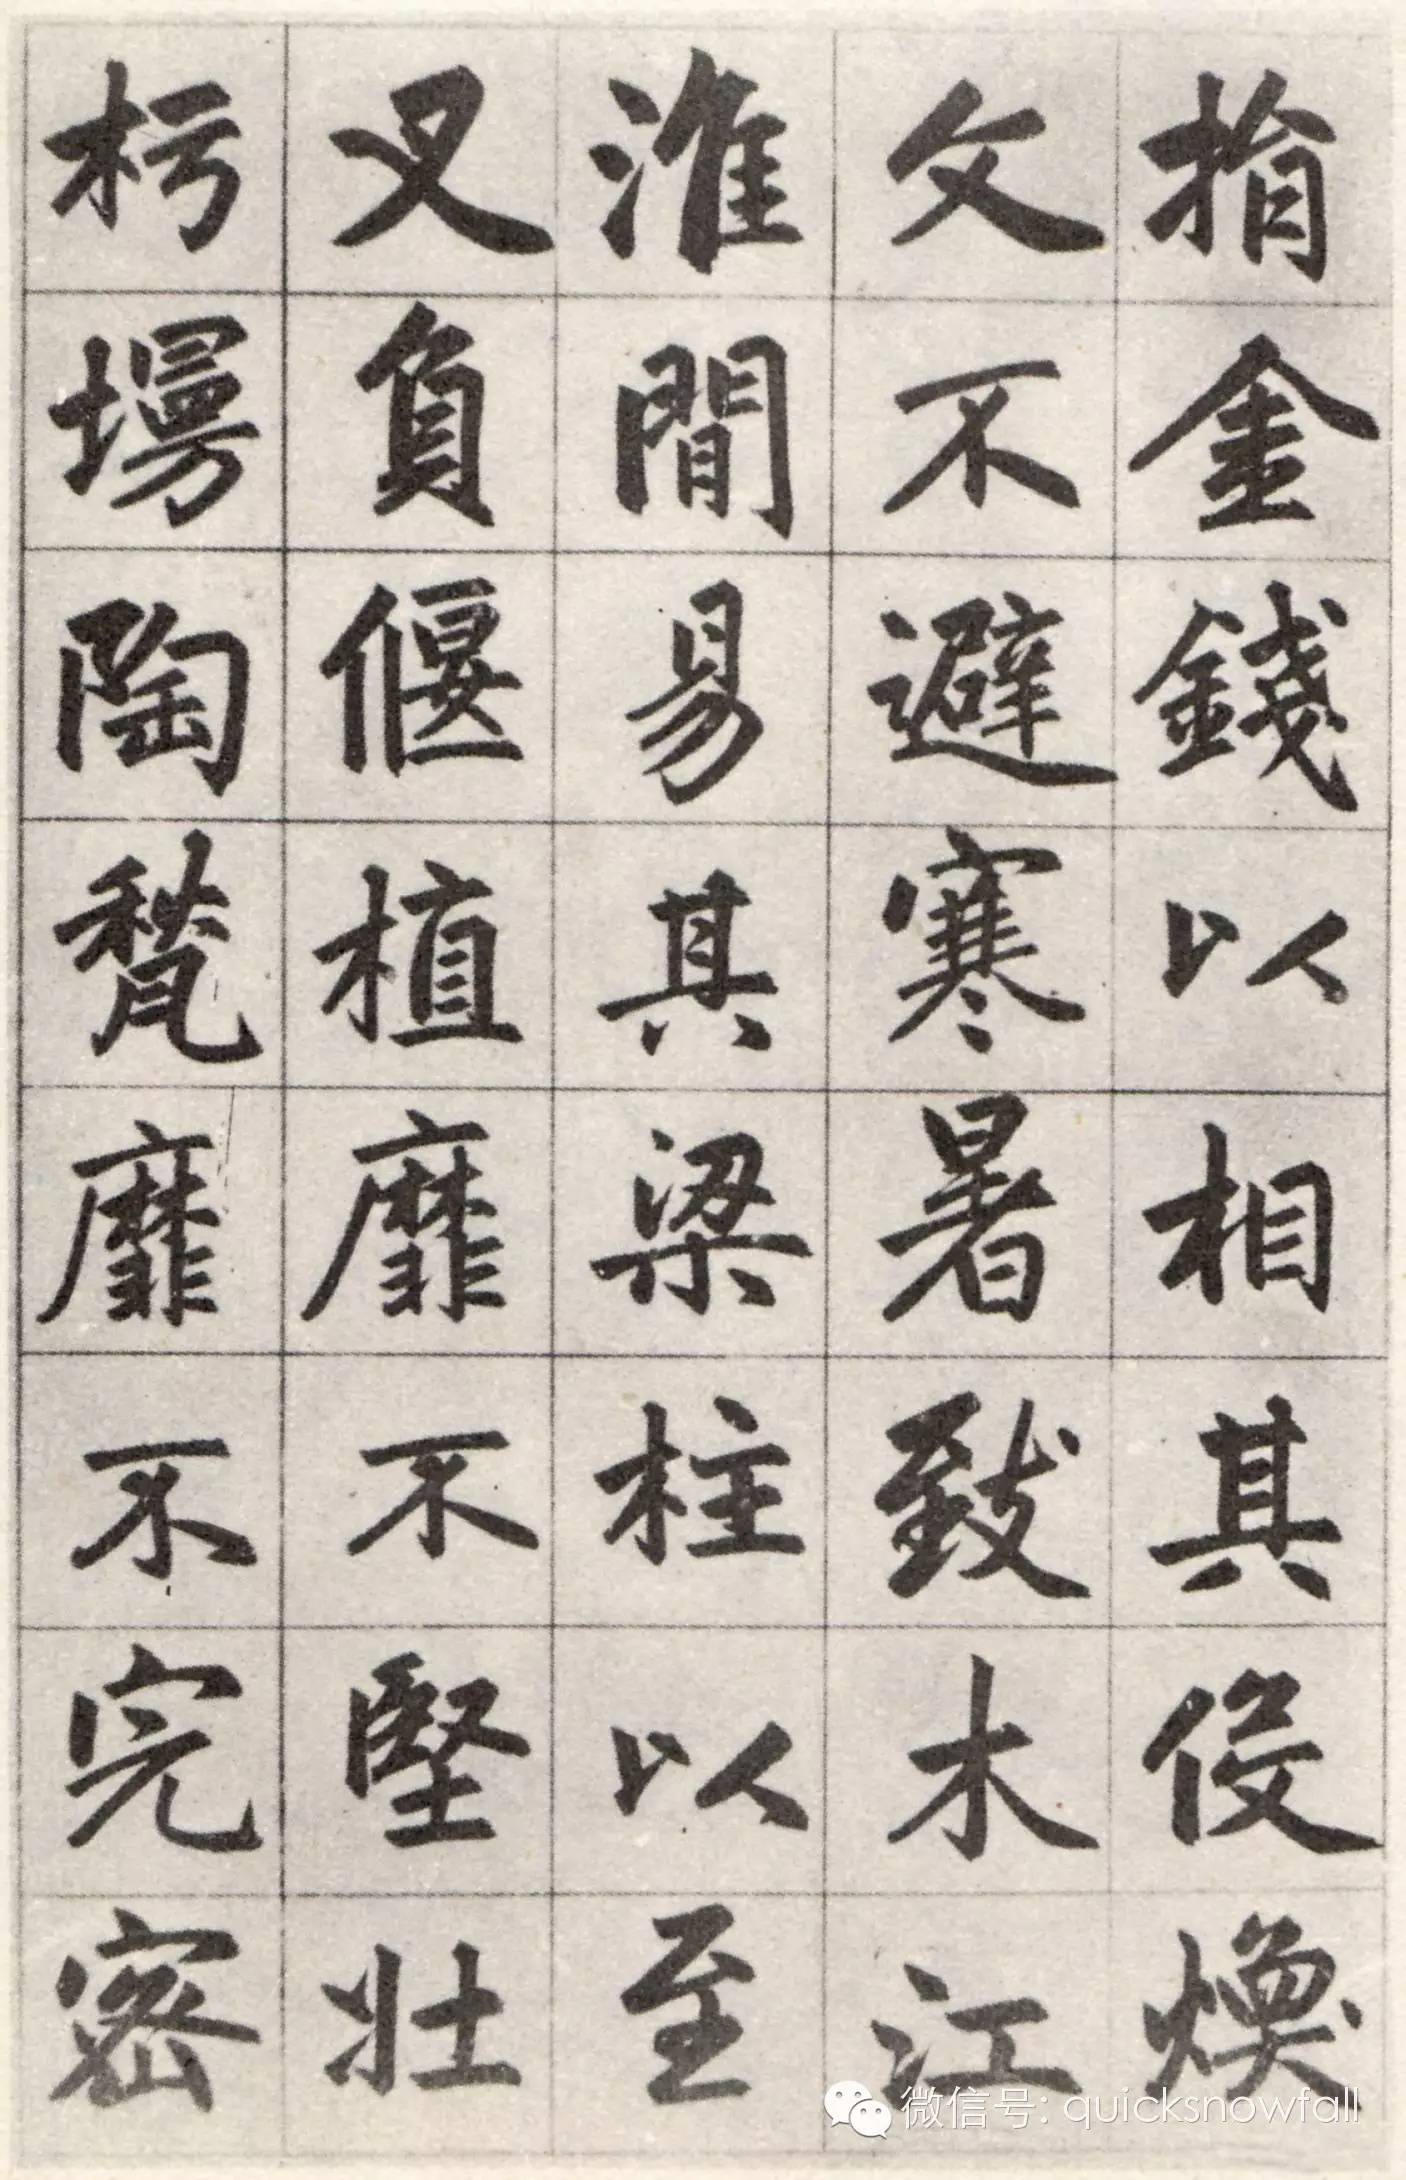 捐金錢以相其伇煥
文不避寒暑致木江
淮間易其梁柱以至
叉負偃植靡不堅壯
杇墁陶甃靡不完密
微信号: quicksnowfall